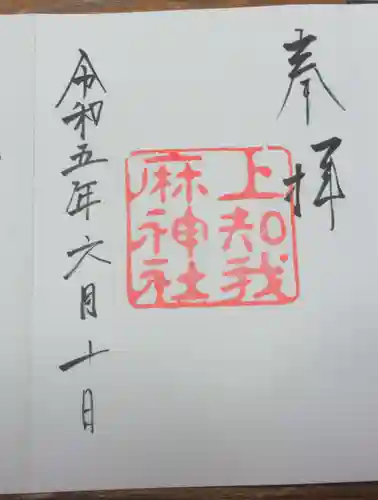 奉拝
上知我
麻神社
令和五年六月十日